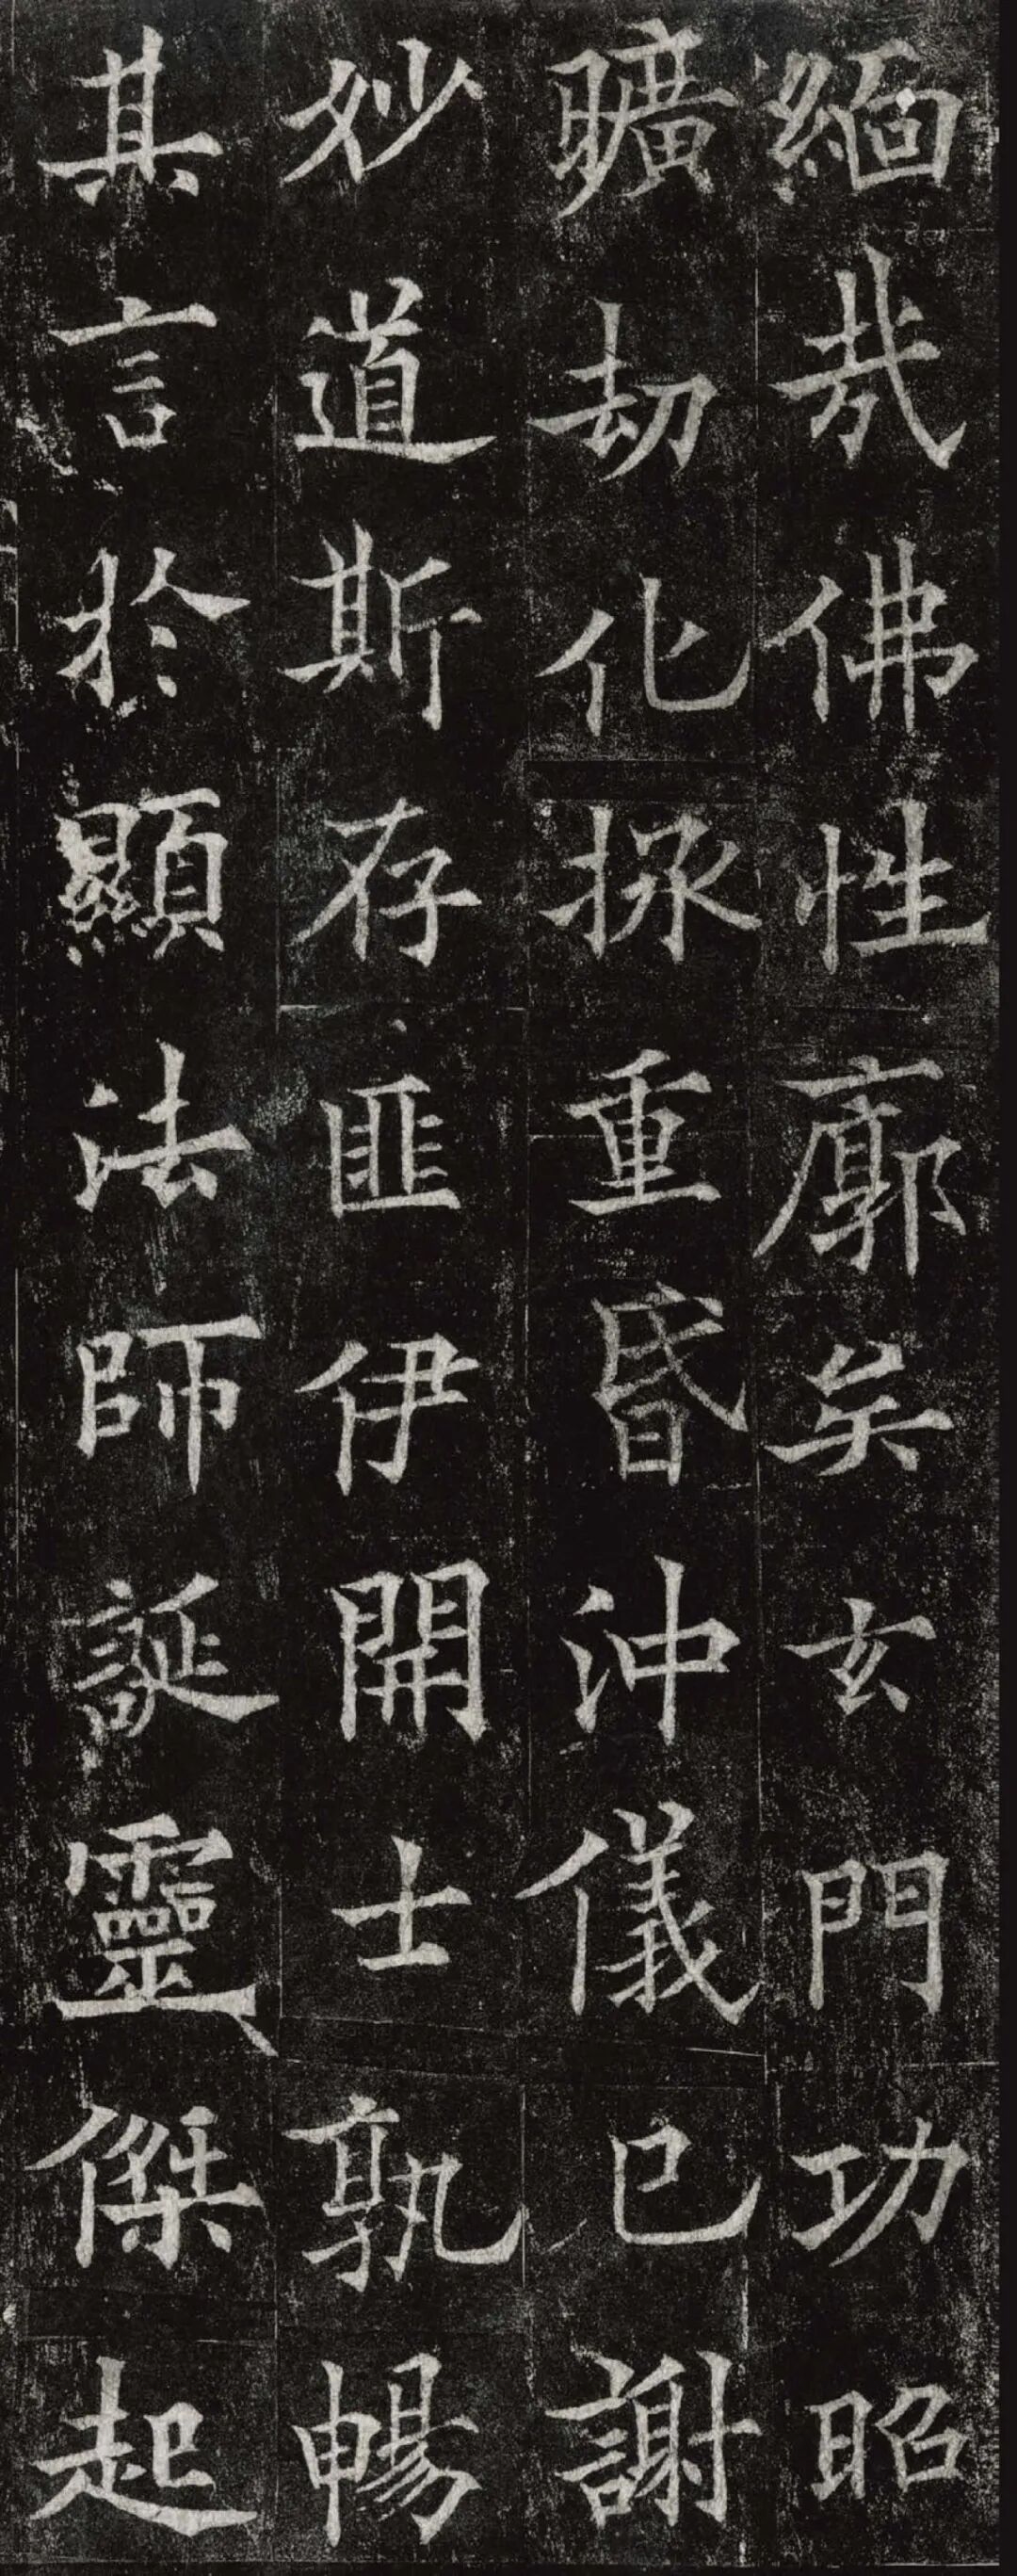 緬哉佛性廓矣玄門功昭
曠劫化拯重昏沖儀已謝
妙道斯存匪伊開士孰暢
其言於顯法師誕靈傑起